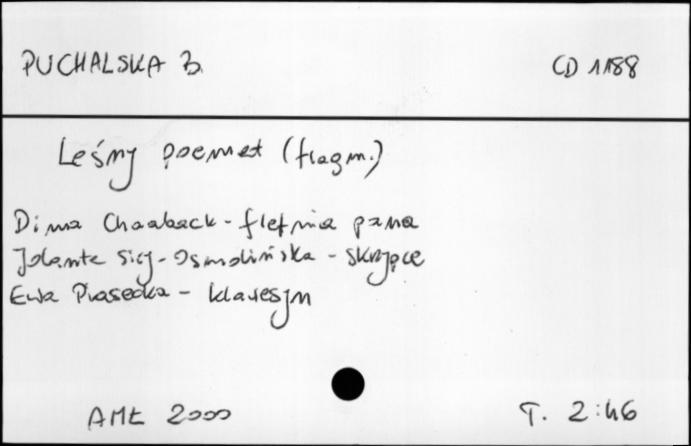 PUCHALSKA B. CD 1188
Leśny poemat (fragm.)
Dima Chaaback - fletnia pana
Jolanta - skrzypce
Ewa Piasecka - klawesyn
AMŁ 2000 T. 2:46